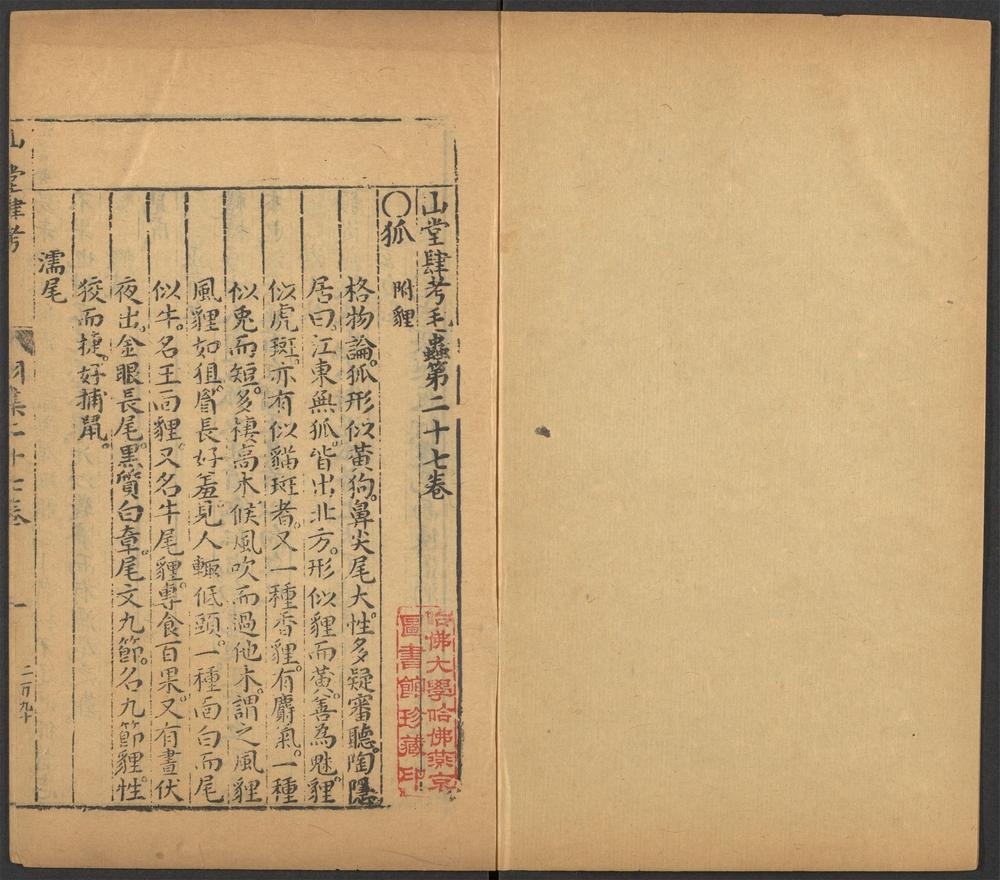 山堂肆考毛蟲第二十七卷
〇狐 附貍
格物論。狐形似黃狗。鼻尖尾大。性多疑審聽。陶隱
居曰。江東無狐。皆出北方。形似貍而黃。善為魅。貍
似虎斑。亦有似貓斑者。又一種香貍。有麝氣。一種
似兎而短。多棲高木。候風吹而過他木。謂之風貍
風貍如狙。眉長好羞。見人輙低頭。一種面白而尾
似牛。名玉面貍。又名牛尾貍。專食百果。又有晝伏
夜出。金眼長尾。黑質白章。尾文九節。名九節貍。性
狡而捷。好捕鼠。
濡尾
山堂肆考
羽集二十七卷
一
二百九十
哈佛大學哈佛燕京
圖書館珍藏印